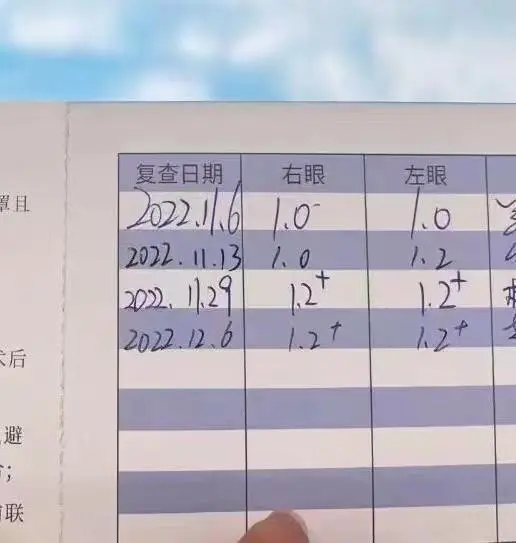 复查日期 右眼 左眼
2022.11.6 1.0⁻ 1.0
2022.11.13 1.0 1.2
2022.11.29 1.2⁺ 1.2⁺
2022.12.6 1.2⁺ 1.2⁺
罩且
术后
避
联